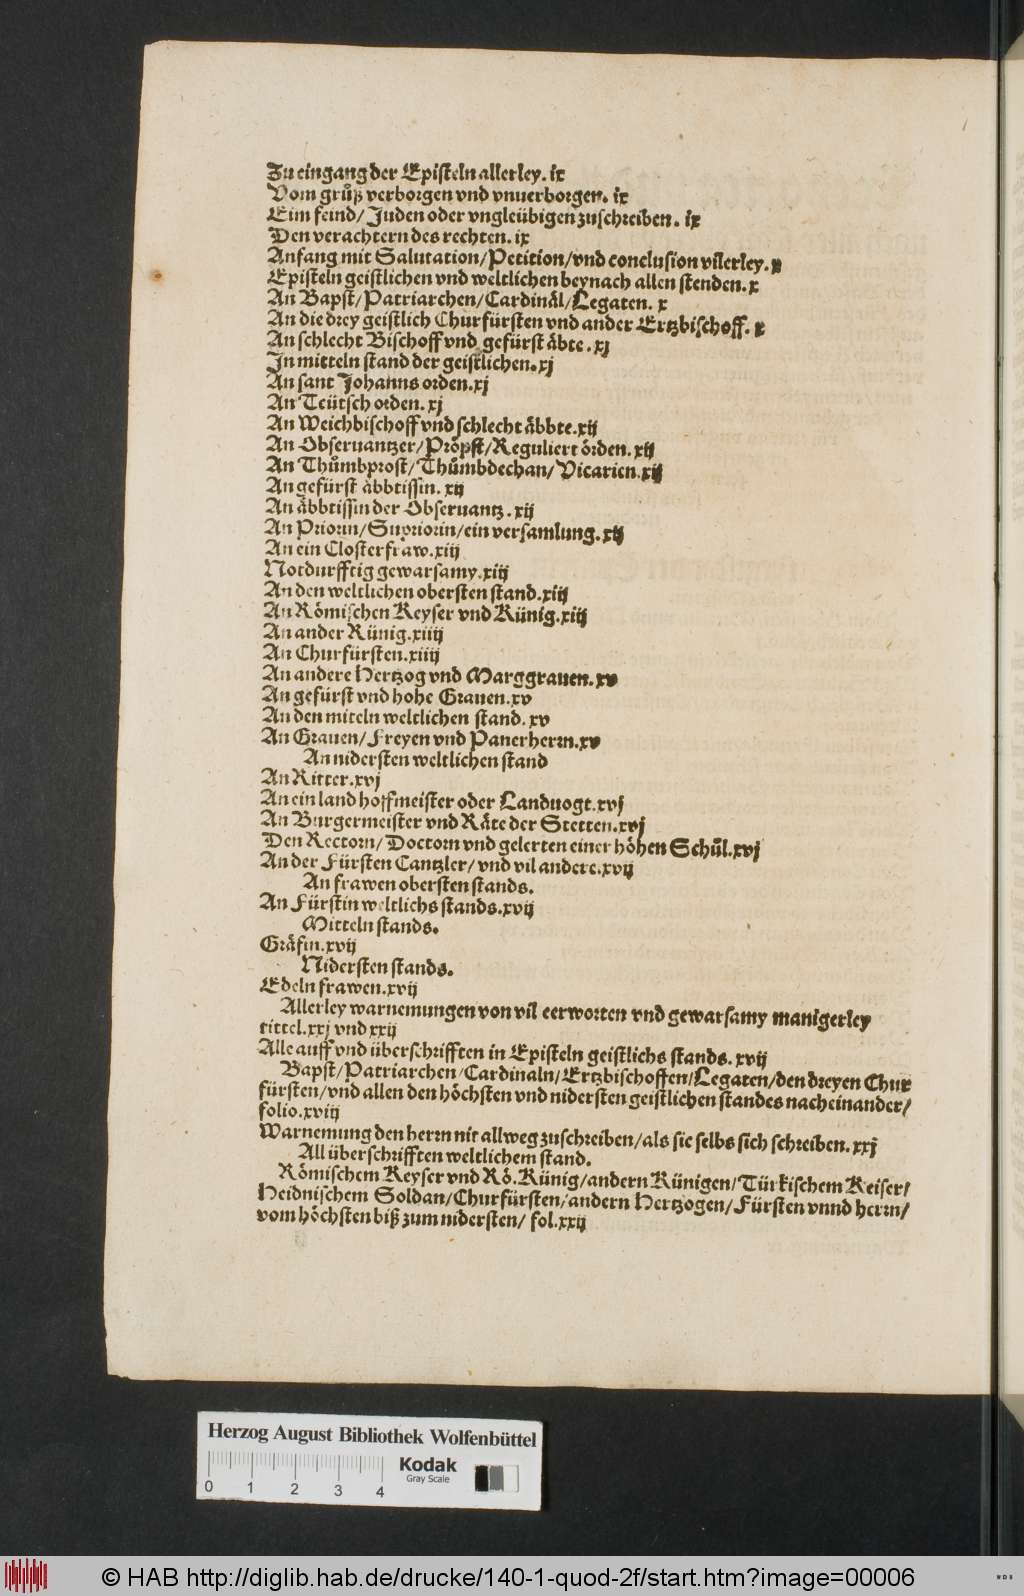 Zu eingang der Episteln allerley. ix
Vom gruͦß verborgen vnd vnuerborgen. ix
Eim feind/ Juden oder vngleübigen zuschreiben. ix
Den verachtern des rechten. ix
Anfang mit Salutation/Petition/vnd conclusion vilerley. x
Episteln geistlichen vnd weltlichen beynach allen stenden. x
An Bapst/Patriarchen/Cardinäl/Legaten. x
An die drey geistlich Churfürsten vnd ander Ertzbischoff. x
An schlecht Bischoff vnd gefürst äbte. xj
In mitteln stand der geistlichen. xj
An sant Johanns orden. xj
An Teütsch orden. xj
An Weichbischoff vnd schlecht äbbte. xij
An Obseruantzer/Pröpst/Reguliert örden. xij
An Thuͦmbprost/Thuͦmbdechan/Vicarien. xij
An gefürst äbbtissin. xij
An äbbtissin der Obseruantz. xij
An Priorin/Supriorin/ein versamlung. xij
An ein Closterfraw. xiij
Notdurfftig gewarsamy. xiij
An den weltlichen obersten stand. xiij
An Römischen Keyser vnd Künig. xiij
An ander Künig. xiiij
An Churfürsten. xiiij
An andere Hertzog vnd Marggrauen. xv
An gefürst vnd hohe Grauen. xv
An den miteln weltlichen stand. xv
An Grauen/Freyen vnd Panerherrn. xv
An nidersten weltlichen stand
An Ritter. xvj
An ein landhoffmeister oder Landuogt. xvj
An Burgermeister vnd Räte der Stetten. xvj
Den Rectorn/Doctorn vnd gelerten einer höhen Schuͦl. xvj
An der Fürsten Cantzler/vnd vil andere. xvij
An frawen obersten stands.
An Fürstin weltlichs stands. xvij
Mitteln stands.
Gräfin. xvij
Nidersten stands.
Edeln frawen. xvij
Allerley warnemungen von vil eerworten vnd gewarsamy manigerley
tittel. xxj vnd xxij
Alle auff vnd überschrifften in Episteln geistlichs stands. xvij
Bapst/Patriarchen/Cardinaln/Ertzbischoffen/Legaten/den dreyen Chur
fürsten/vnd allen den höchsten vnd nidersten geistlichen standes nacheinander/
folio. xviij
Warnemung den herrn nit allweg zuschreiben/als sie selbs sich schreiben. xxj
All überschrifften weltlichem stand.
Römischem Keyser vnd Rö. Künig/andern Künigen/Türkischem Keiser/
Heidnischem Soldan/Churfürsten/andern Hertzogen/Fürsten vnnd herrn/
vom höchsten biß zum nidersten/ fol. xxij
Herzog August Bibliothek Wolfenbüttel
Kodak
Gray Scale
0 1 2 3 4
© HAB http://diglib.hab.de/drucke/140-1-quod-2f/start.htm?image=00006